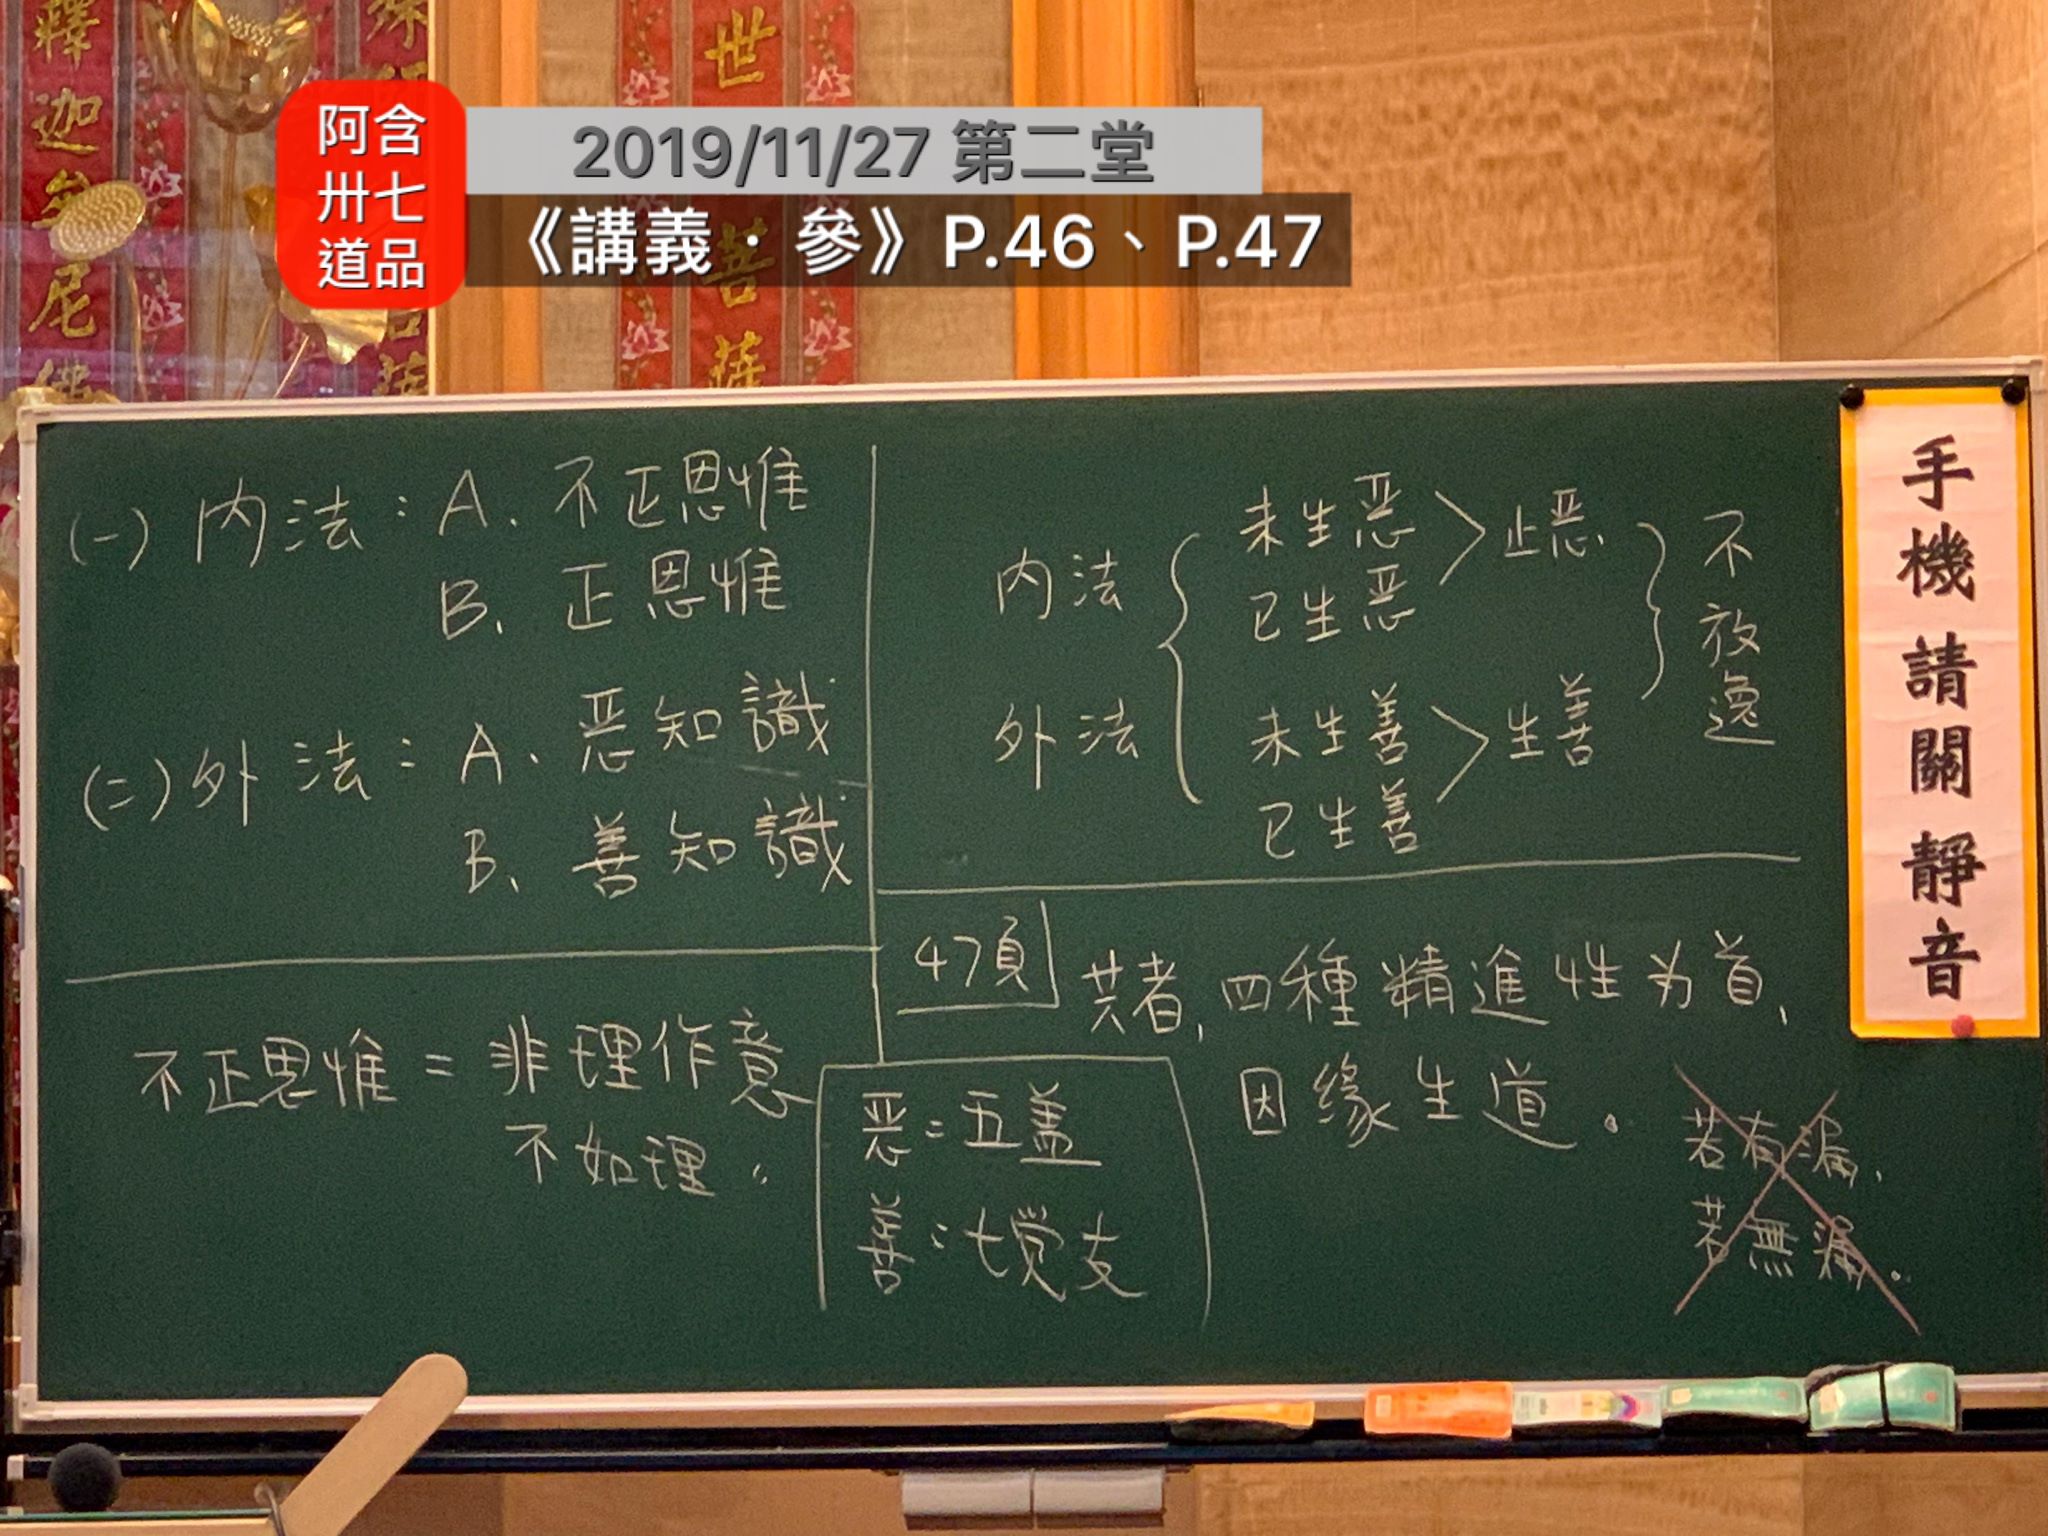 釋迦牟尼佛
世
菩薩
阿含
卅七
道品
2019/11/27 第二堂
《講義·參》P.46、P.47
手機請關靜音
(一) 内法:A. 不正思惟
B. 正思惟
(二) 外法:A. 恶知識
B. 善知識
内法
外法
未生恶
已生恶
止恶
未生善
已生善
生善
不放逸
不正思惟 = 非理作意
不如理〃
恶=五盖
善=七覚支
47頁
共者,四種精進性为首,
因缘生道。
若有漏,
若無漏。